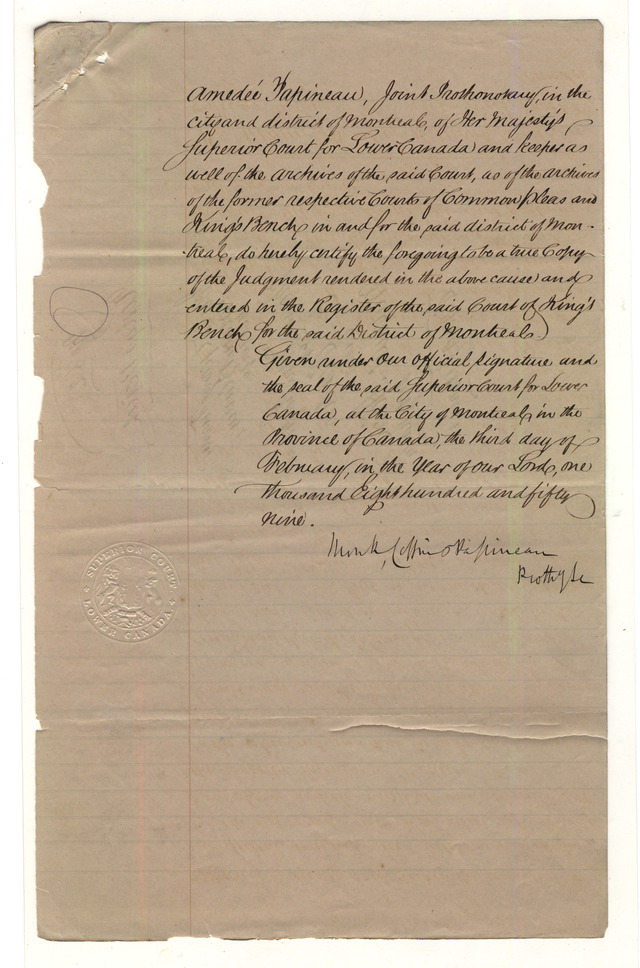 Amedée Papineau, Joint Prothonotary, in the
city and district of Montreal, of Her Majesty's
Superior Court for Lower Canada, and keeper as
well of the archives of the said Court, as of the archives
of the former respective Courts of Common Pleas and
King's Bench in and for the said district of Mon-
treal, do hereby certify the forgoing to be a true Copy
of the Judgment rendered in the above cause, and
entered in the Register of the said Court of King's
Bench for the said District of Montreal.
Given under our official signature and
the seal of the said Superior Court for Lower
Canada, at the City of Montreal, in the
Province of Canada, the third day of
February, in the Year of our Lord, one
thousand Eight hundred and fifty
nine.
Monk, Coffin & Papineau
SUPERIOR COURT
LOWER CANADA